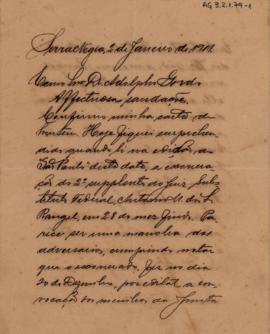 AG 3.2.1.79-1
Serra Negra, 2 de Janeiro de 1912
Exmo Snr. Dr. Adolpho Gordo
Affectuosa saudação.
Confirmo minha carta de
hontem. Hoje fiquei surprehen
dido quando li na
São Paulo desta data, a exonera
ção do 2º supplente do Juiz Subs
tituto Federal,
Rangel, em 28 do mez findo. Pa
rece ser uma manobra dos
adversarios, cumprindo notar
que o exonerado, fez no dia
20 de Dezembro, por edital a
convocação dos membros da Junta